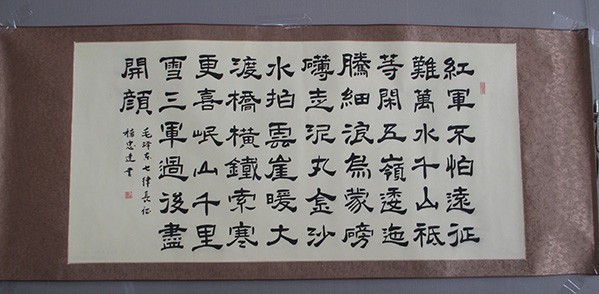 紅軍不怕遠征
難萬水千山祗
等閑五嶺逶迤
騰細浪烏蒙磅
礴走泥丸金沙
水拍雲崖暖大
渡橋橫鐵索寒
更喜岷山千里
雪三軍過後盡
開顏
毛澤東七律長征
忠達書